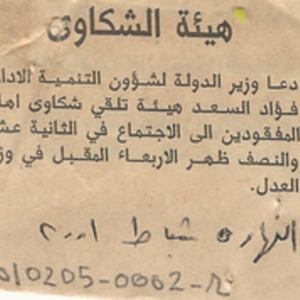 هيئة الشكاوى
دعا وزير الدولة لشؤون التنمية الادار
فؤاد السعد هيئة تلقي شكاوى اها
المفقودين الى الاجتماع في الثانية عش
والنصف ظهر الاربعاء المقبل في وز
العدل.
النهار ٥ شباط ٢٠٠١
010205-0002-R